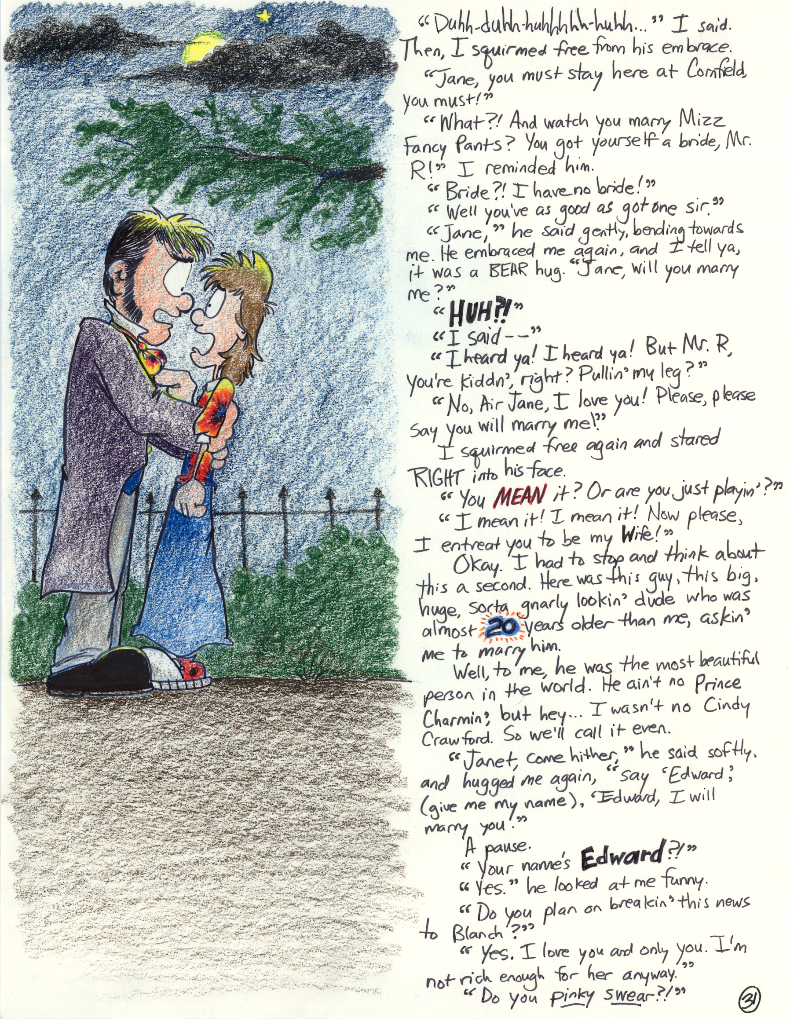 “Duhh-duhh-huhhhhh-huhh...” I said.
Then, I squirmed free from his embrace.
“Jane, you must stay here at Cornfield,
you must!”
“What?! And watch you marry Mizz
Fancy Pants? You got yourself a bride, Mr.
R!” I reminded him.
“Bride?! I have no bride!”
“Well you've as good as got one sir.”
“Jane,” he said gently, bending towards
me. He embraced me again, and I tell ya,
it was a BEAR hug. “Jane, will you marry
me?”
“HUH?!”
“I said--”
“I heard ya! I heard ya! But Mr. R,
you're kiddn', right? Pullin' my leg?”
“No, Air Jane, I love you! Please, please
say you will marry me!”
I squirmed free again and stared
RIGHT into his face.
“You MEAN it? Or are you just playin'?”
“I mean it! I mean it! Now please,
I entreat you to be my Wife!”
Okay. I had to stop and think about
this a second. Here was this guy, this big,
huge, sorta gnarly lookin' dude who was
almost 20 years older than me, askin'
me to marry him.
Well, to me, he was the most beautiful
person in the world. He ain't no Prince
Charmin', but hey... I wasn't no Cindy
Crawford. So we'll call it even.
“Janet, come hither,” he said softly.
and hugged me again, “say ‘Edward’,
(give me my name), ‘Edward, I will
marry you.’”
A pause.
“Your name's Edward?!”
“Yes.” he looked at me funny.
“Do you plan on breakin' this news
to Blanch?”
“Yes. I love you and only you. I'm
not rich enough for her anyway.”
“Do you pinky swear?!”
31